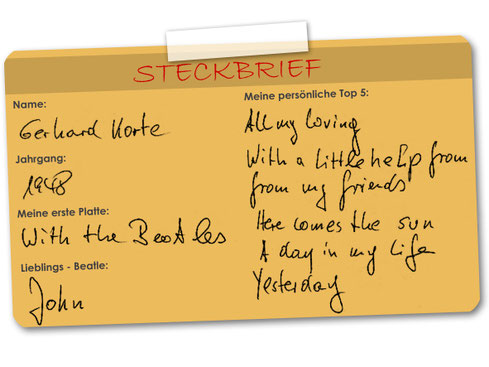 STECKBRIEF
Name:
Gerhard Korte
Jahrgang:
1948
Meine erste Platte:
With the Beatles
Lieblings - Beatle:
John
Meine persönliche Top 5:
All my loving
With a little help from
from my friends
Here comes the sun
A day in my life
Yesterday